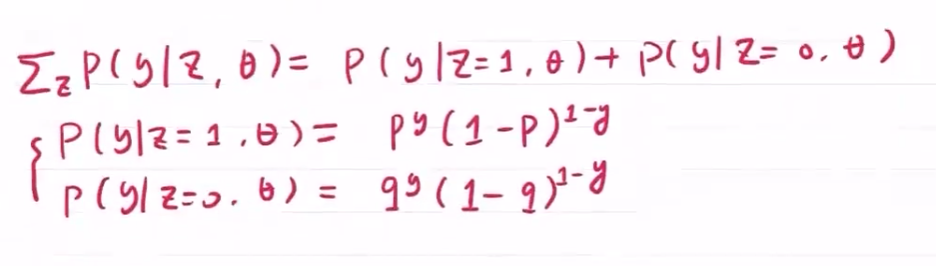 Σ_z P(y|z, θ) = P(y|z=1, θ) + P(y|z=0, θ)
P(y|z=1, θ) = p^y (1-p)^{1-y}
P(y|z=0, θ) = q^y (1-q)^{1-y}